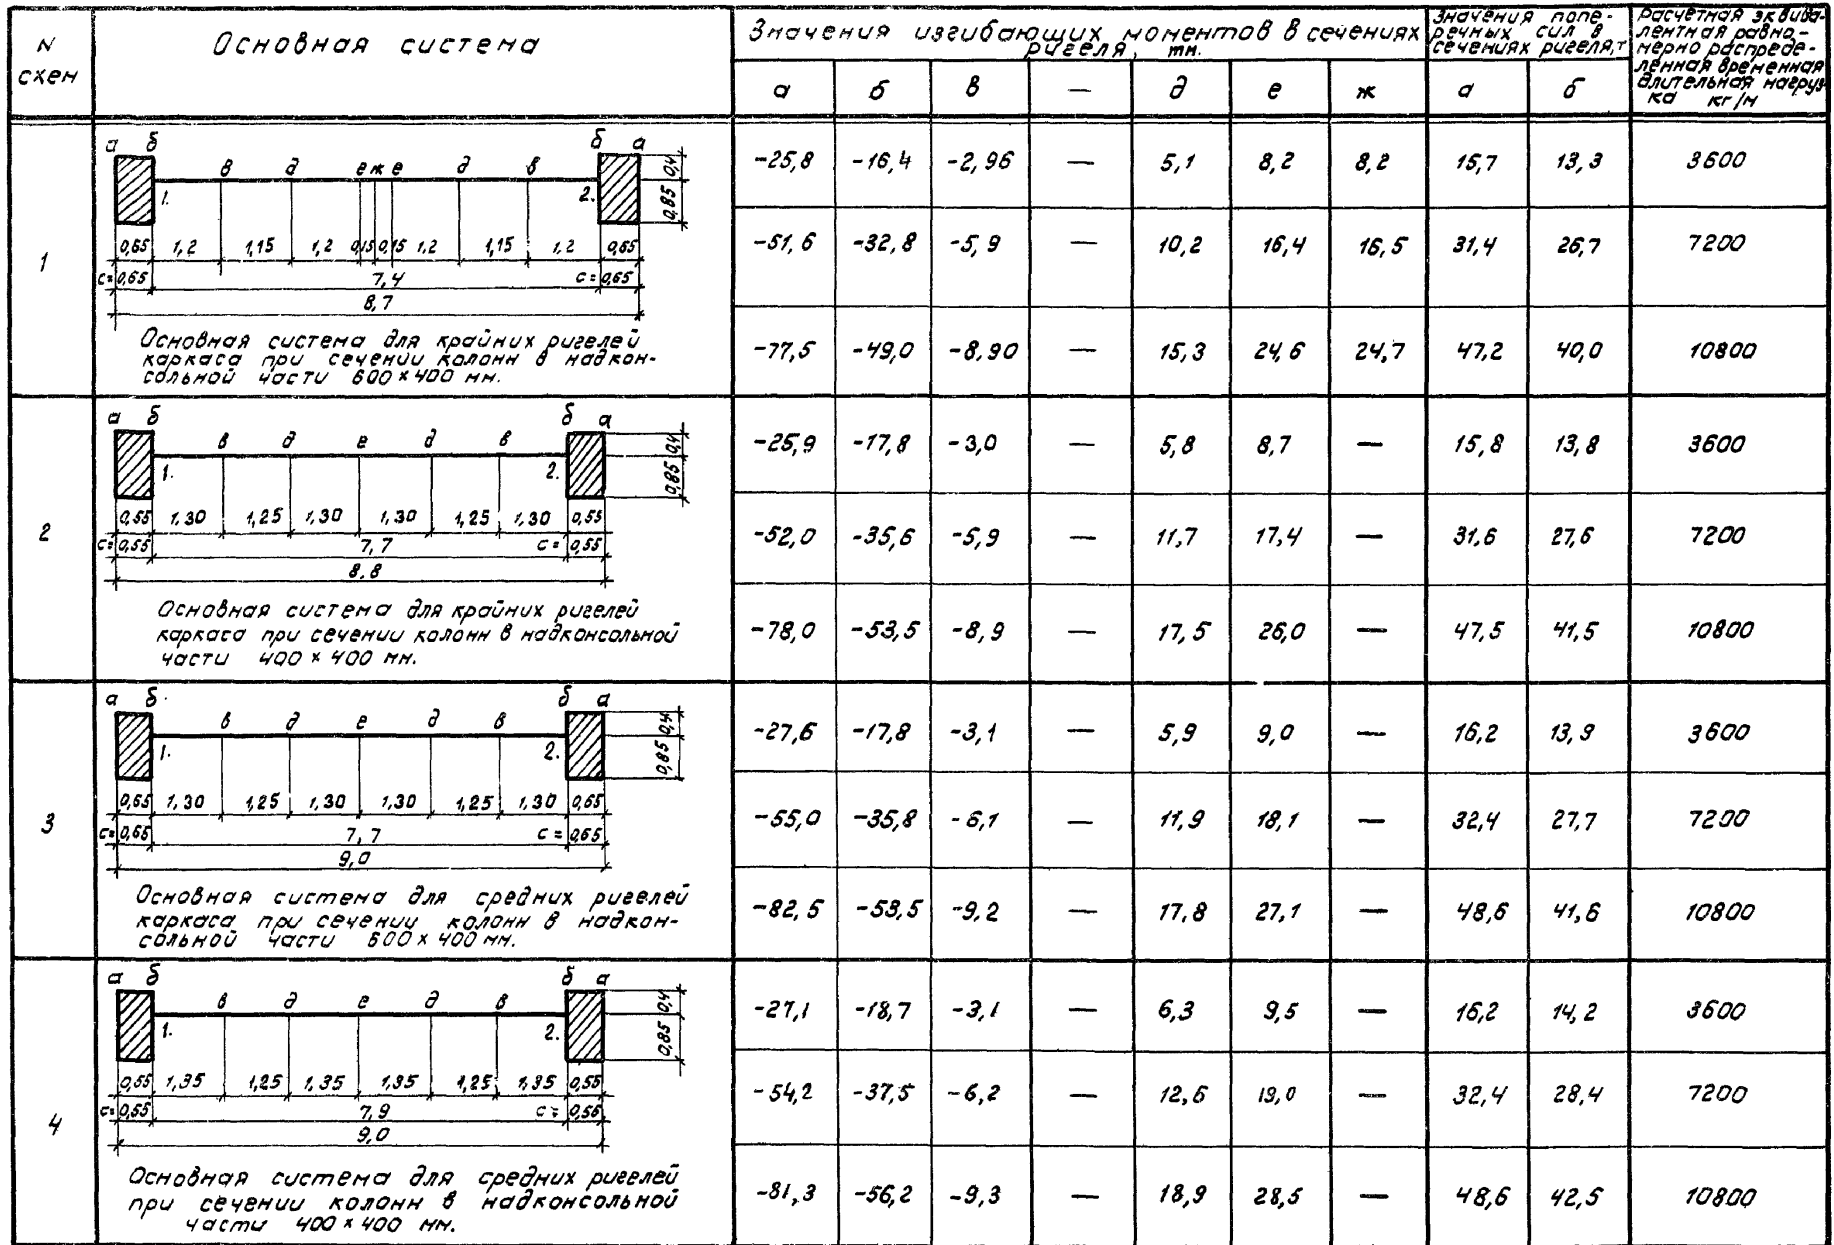 N схем
Основная система
Значения изгибающих моментов в сечениях
ригеля, тм.
Значения попе-
речных сил в
сечениях ригеля, т
Расчётная эквива-
лентная равно-
мерно распреде-
лённая временная
длительная нагруз-
ка кг/м
а б в — д е ж а б
1
а б б а
в д е ж е д в
1. 2.
0,4
0,85
0,65 1,2 1,15 1,2 0,15 0,15 1,2 1,15 1,2 0,65
c=0,65 7,4 c=0,65
8,7
Основная система для крайних ригелей
каркаса при сечении колонн в надкон-
сольной части 600×400 мм.
-25,8 -16,4 -2,96 — 5,1 8,2 8,2 15,7 13,3 3600
-51,6 -32,8 -5,9 — 10,2 16,4 16,5 31,4 26,7 7200
-77,5 -49,0 -8,90 — 15,3 24,6 24,7 47,2 40,0 10800
2
а б б а
в д е д в
1. 2.
0,4
0,85
0,55 1,30 1,25 1,30 1,30 1,25 1,30 0,55
c=0,55 7,7 c=0,55
8,8
Основная система для крайних ригелей
каркаса при сечении колонн в надконсольной
части 400×400 мм.
-25,9 -17,8 -3,0 — 5,8 8,7 — 15,8 13,8 3600
-52,0 -35,6 -5,9 — 11,7 17,4 — 31,6 27,6 7200
-78,0 -53,5 -8,9 — 17,5 26,0 — 47,5 41,5 10800
3
а б б а
в д е д в
1. 2.
0,4
0,85
0,65 1,30 1,25 1,30 1,30 1,25 1,30 0,65
c=0,65 7,7 c=0,65
9,0
Основная система для средних ригелей
каркаса при сечении колонн в надкон-
сольной части 600×400 мм.
-27,6 -17,8 -3,1 — 5,9 9,0 — 16,2 13,9 3600
-55,0 -35,8 -6,1 — 11,9 18,1 — 32,4 27,7 7200
-82,5 -53,5 -9,2 — 17,8 27,1 — 48,6 41,6 10800
4
а б б а
в д е д в
1. 2.
0,4
0,85
0,55 1,35 1,25 1,35 1,35 1,25 1,35 0,55
c=0,55 7,9 c=0,55
9,0
Основная система для средних ригелей
при сечении колонн в надконсольной
части 400×400 мм.
-27,1 -18,7 -3,1 — 6,3 9,5 — 16,2 14,2 3600
-54,2 -37,5 -6,2 — 12,6 19,0 — 32,4 28,4 7200
-81,3 -56,2 -9,3 — 18,9 28,5 — 48,6 42,5 10800